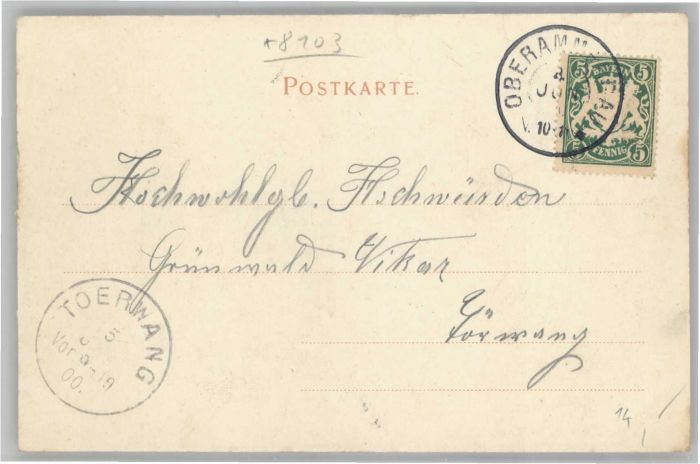 +8103
POSTKARTE.
OBERAMMERGAU
4
JU
V. 10-11
5 BAYERN 5
5 PFENNIG 5
Hochwohlgb. Hochwürden
Grünwald Vikar
Törwang
TOERWANG
5
Vor
00.
14